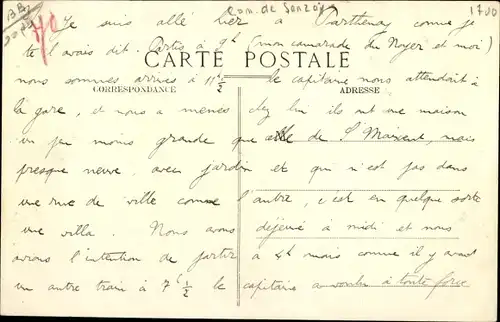 Com. de Sanzay
1700
Je suis allé hier à Parthenay comme je
te l'avais dit. Partis à 9h (mon camarade du Noyer et moi)
CARTE POSTALE
nous sommes arrivés à 11h 1/2 le capitaine nous attendait à
CORRESPONDANCE
ADRESSE
la gare, et nous a menés chez lui ils ont une maison
un peu moins grande que celle de St Maixent, mais
presque neuve, avec jardin et qui n'est pas dans
une rue de ville comme l'autre, c'est en quelque sorte
une villa. Nous avons déjeuné à midi et nous
avions l'intention de partir à 4h mais comme il y avait
un autre train à 7h 1/2 le capitaine a voulu à toute force